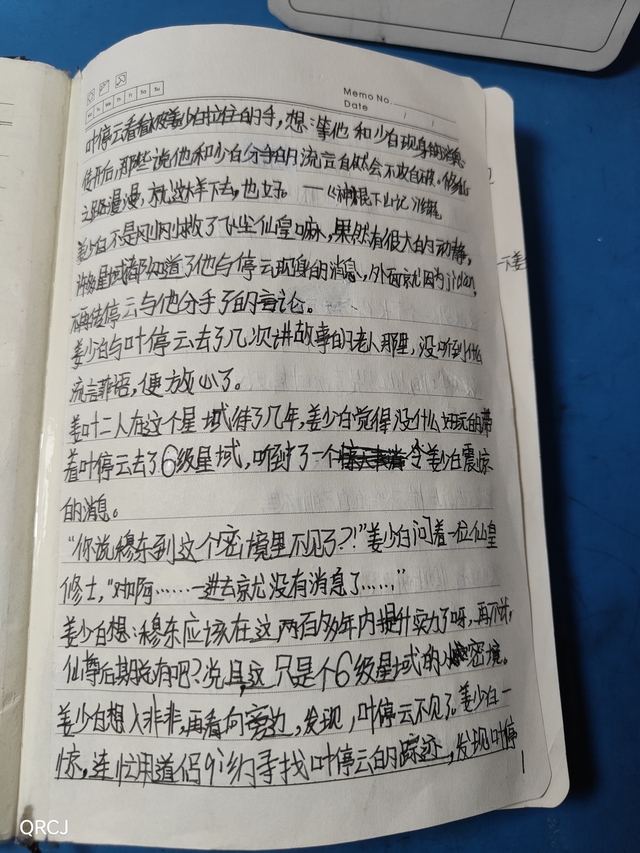 Memo No.
Date / /
Mo Tu We Th Fr Sa Su
叶停云看着被姜少白拉住的手，想：等他和少白现身的消息
传开后，那些说他和少白分手的流言自然会不攻自破。修仙
之路漫漫，就这样下去，也好。 —《神棍下山记》
姜少白不是刚刚救了飞坐仙皇嘛，果然有很大的动静，
许多星域都知道了他与停云现身的消息，外面就因为jidan，
不再传停云与他分手了的言论。
姜少白与叶停云去了几次讲故事的老人那里，没听到什么
流言菲语，便放心了。
姜叶二人在这个星域待了几年，姜少白觉得没什么好玩的带
着叶停云去了6级星域，听到了一个令姜少白震惊
的消息。
“你说穆东到这个密境里不见了？！”姜少白问着一位仙皇
修士，“对啊……一进去就没有消息了……”
姜少白想：穆东应该在这两百多年内提升实力了呀，再不济，
仙尊后期总有吧？况且，这只是个6级星域的密境。
姜少白想入非非，再看向旁边，发现，叶停云不见了。姜少白一
惊，连忙用道侣qi约寻找叶停云的踪迹，发现叶停
1
下姜
QRCJ